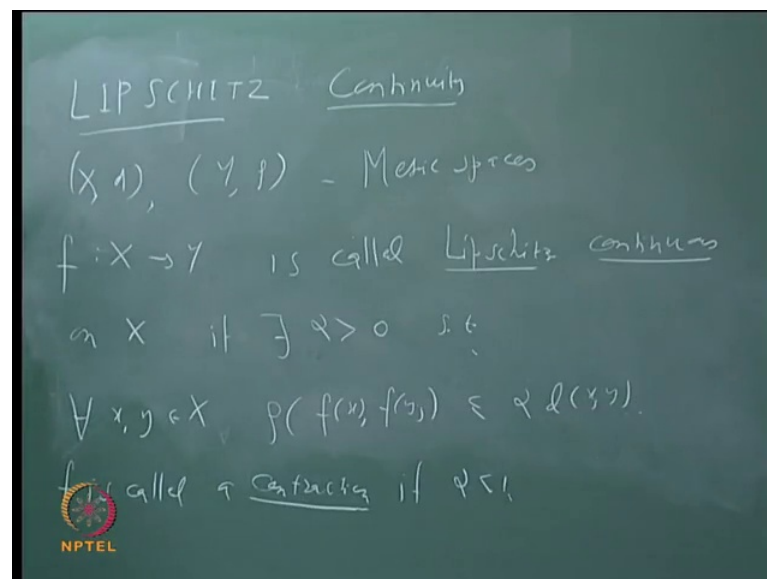 LIPSCHITZ Continuity
(X, d), (Y, ρ) - Metric spaces
f : X → Y is called Lipschitz continuous
on X if ∃ α > 0 s.t.
∀ x, y ∈ X ρ( f(x), f(y) ) ≤ α d(x, y).
f is called a contraction if α < 1.
NPTEL